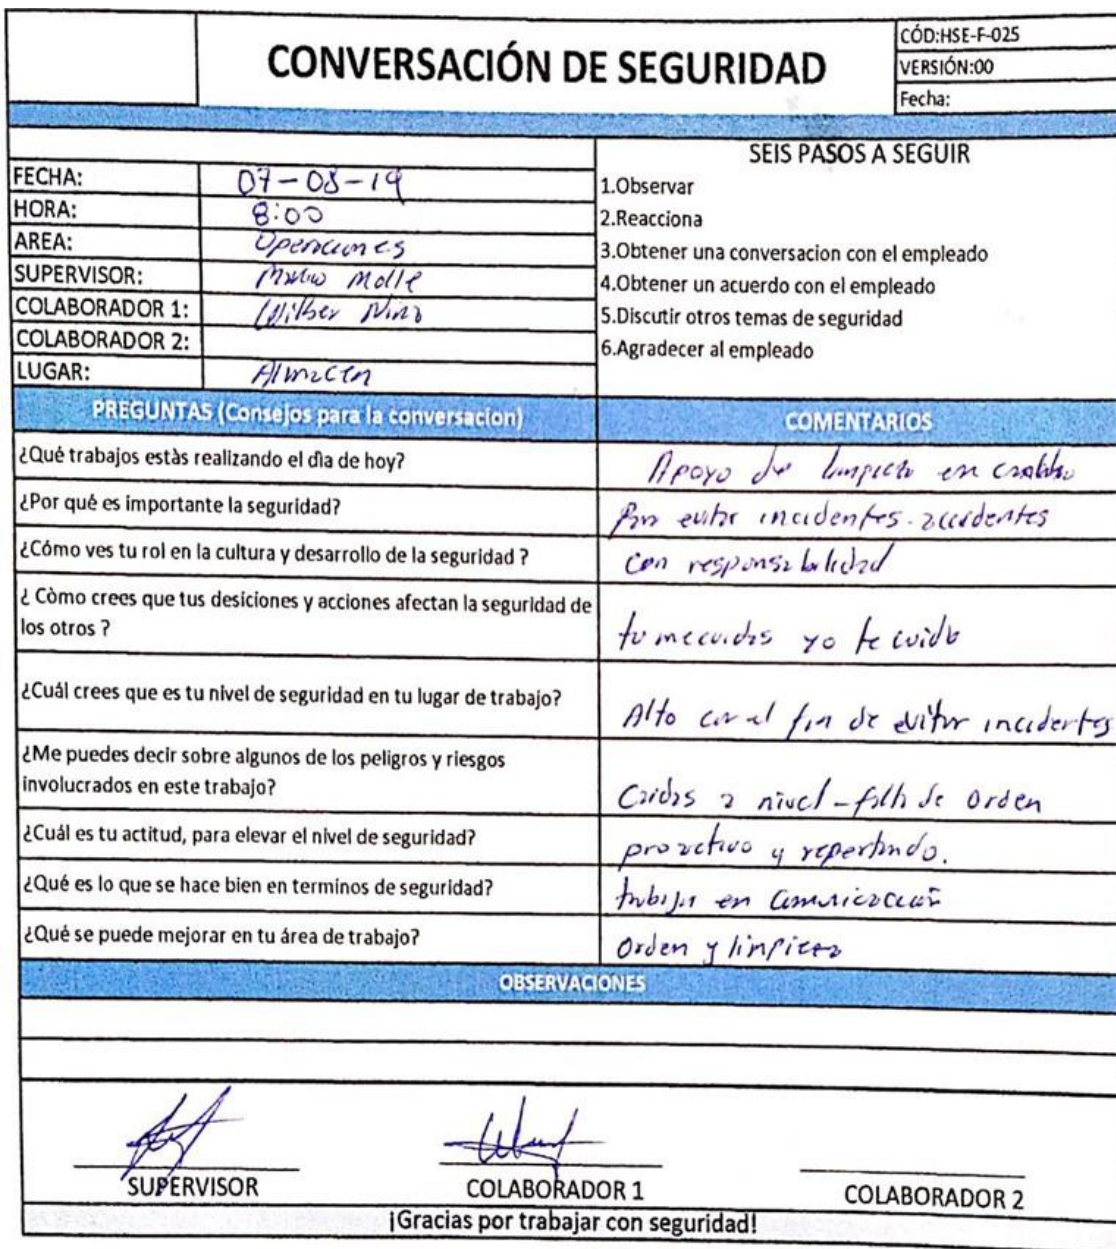 CONVERSACIÓN DE SEGURIDAD
CÓD:HSE-F-025
VERSIÓN:00
Fecha:
FECHA: 07-08-19
HORA: 8:00
AREA: Operaciones
SUPERVISOR: Molle
COLABORADOR 1: Wilber Nino
COLABORADOR 2:
LUGAR: Almacen
SEIS PASOS A SEGUIR
1.Observar
2.Reacciona
3.Obtener una conversacion con el empleado
4.Obtener un acuerdo con el empleado
5.Discutir otros temas de seguridad
6.Agradecer al empleado
PREGUNTAS (Consejos para la conversacion)
COMENTARIOS
¿Qué trabajos estàs realizando el dìa de hoy?
Apoyo de limpieza en
¿Por qué es importante la seguridad?
evitar incidentes-accidentes
¿Cómo ves tu rol en la cultura y desarrollo de la seguridad ?
con responsabilidad
¿ Còmo crees que tus desiciones y acciones afectan la seguridad de
los otros ?
tu me cuidas yo te cuido
¿Cuál crees que es tu nivel de seguridad en tu lugar de trabajo?
Alto con el fin de evitar incidentes
¿Me puedes decir sobre algunos de los peligros y riesgos
involucrados en este trabajo?
Caidas a nivel - falta de orden
¿Cuál es tu actitud, para elevar el nivel de seguridad?
proactivo y reportando.
¿Qué es lo que se hace bien en terminos de seguridad?
trabajar en comunicación
¿Qué se puede mejorar en tu área de trabajo?
Orden y limpieza
OBSERVACIONES
SUPERVISOR
COLABORADOR 1
COLABORADOR 2
¡Gracias por trabajar con seguridad!